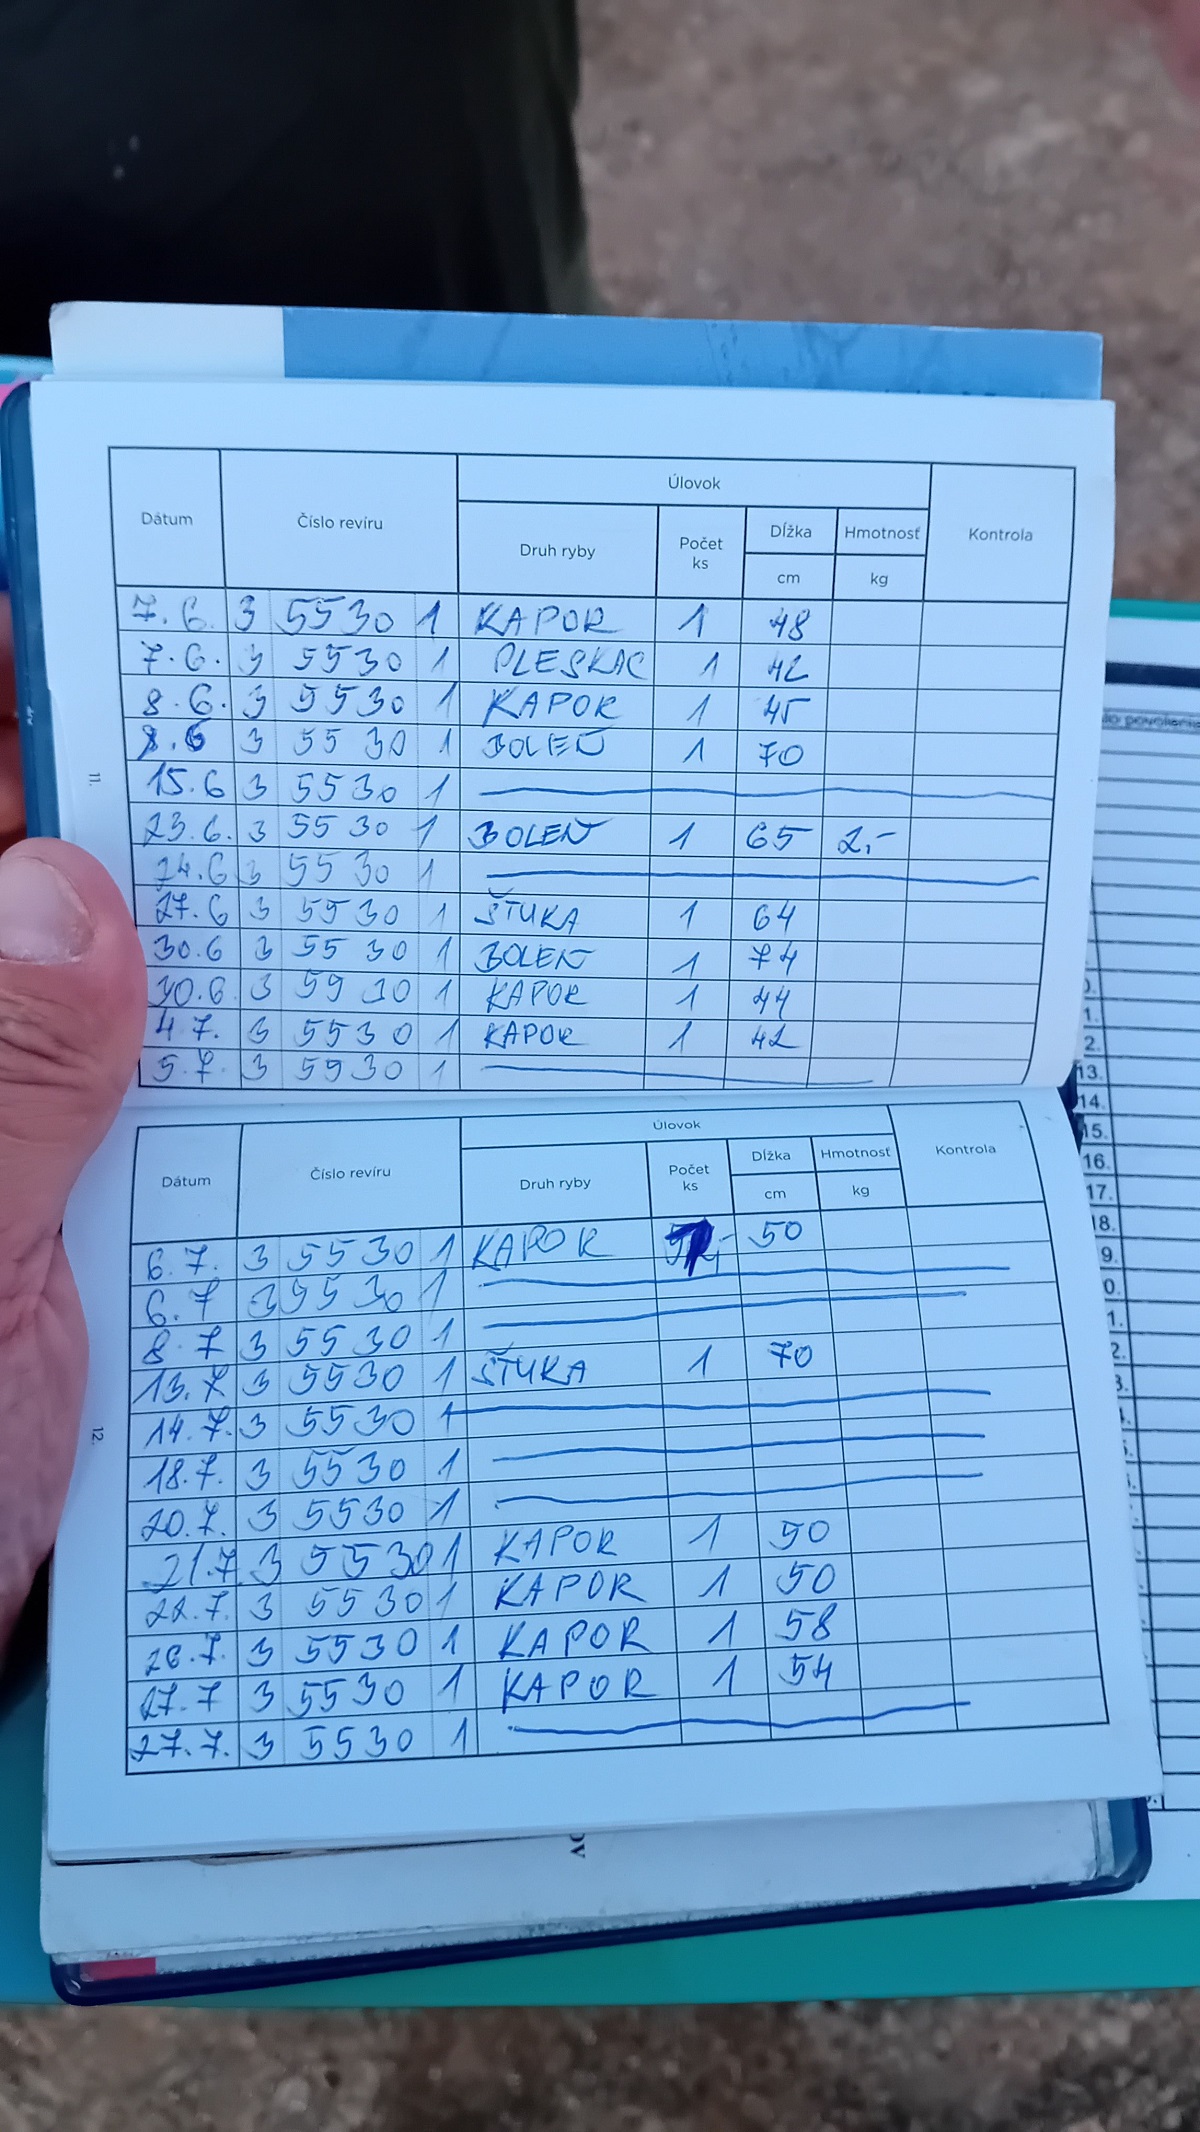 Úlovok
Dátum Číslo revíru Druh ryby Počet ks Dĺžka Hmotnosť Kontrola
cm kg
7.6. 3 5530 1 KAPOR 1 48
7.6. 3 5530 1 PLESKAC 1 42
8.6. 3 5530 1 KAPOR 1 45
8.6 3 5530 1 BOLEŇ 1 70
15.6 3 5530 1
23.6. 3 5530 1 BOLEŇ 1 65 2,-
24.6 3 5530 1
27.6 3 5530 1 ŠŤUKA 1 64
30.6 3 5530 1 BOLEŇ 1 74
30.6 3 5530 1 KAPOR 1 44
4.7. 3 5530 1 KAPOR 1 42
5.7. 3 5530 1
11.
Úlovok
Dátum Číslo revíru Druh ryby Počet ks Dĺžka Hmotnosť Kontrola
cm kg
6.7. 3 5530 1 KAPOR 1 50
6.7 3 5530 1
8.7 3 5530 1
13.7 3 5530 1 ŠŤUKA 1 70
14.7. 3 5530 1
18.7. 3 5530 1
20.7. 3 5530 1
21.7. 3 5530 1 KAPOR 1 50
22.7. 3 5530 1 KAPOR 1 50
26.7. 3 5530 1 KAPOR 1 58
27.7 3 5530 1 KAPOR 1 54
27.7. 3 5530 1
12.
13.
14.
15.
16.
17.
18.